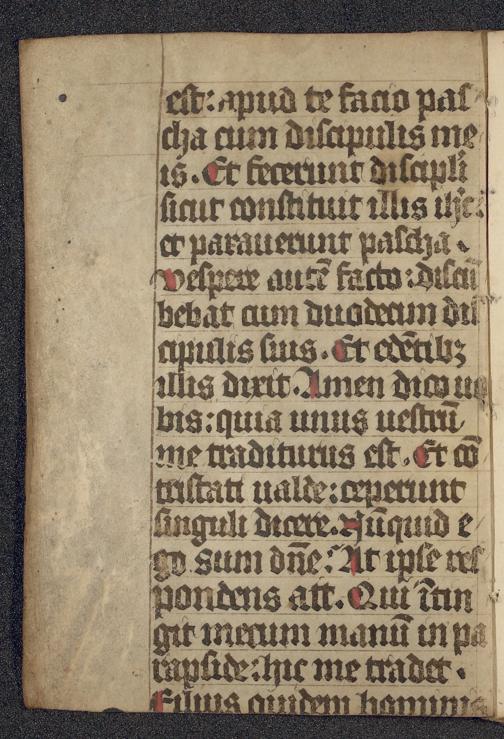 est: apud te facio pas
cha cum discipulis me
is. Et fecerunt discipl̄i
sicut constituit illis ih̄c:
et parauerunt pascha.
Vespere autē facto: discū
bebat cum duodecim dis
cipulis suis. Et edētibꝫ
illis dixit. Amen dico uo
bis: quia unus uestrū
me traditurus est. Et cō
tristati ualde: ceperunt
singuli dicere. Nūquid e
go sum dn̄e: At ipse res
pondens ait. Qui ītin
git mecum manū in pa
rapside: hic me tradet.
Filius quidem hominis